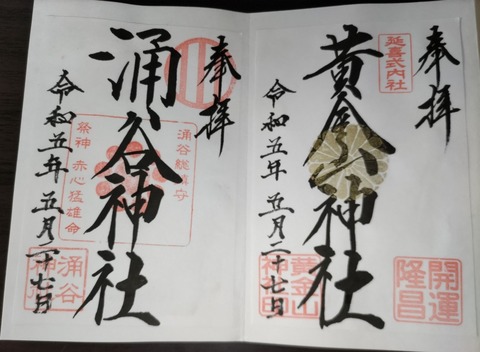 奉拝
延喜式内社
黄金山神社
令和五年五月二十七日
開運隆昌
黄金山神印
奉拝
涌谷総鎮守
涌谷神社
祭神 赤心猛雄命
令和五年五月二十七日
涌谷神